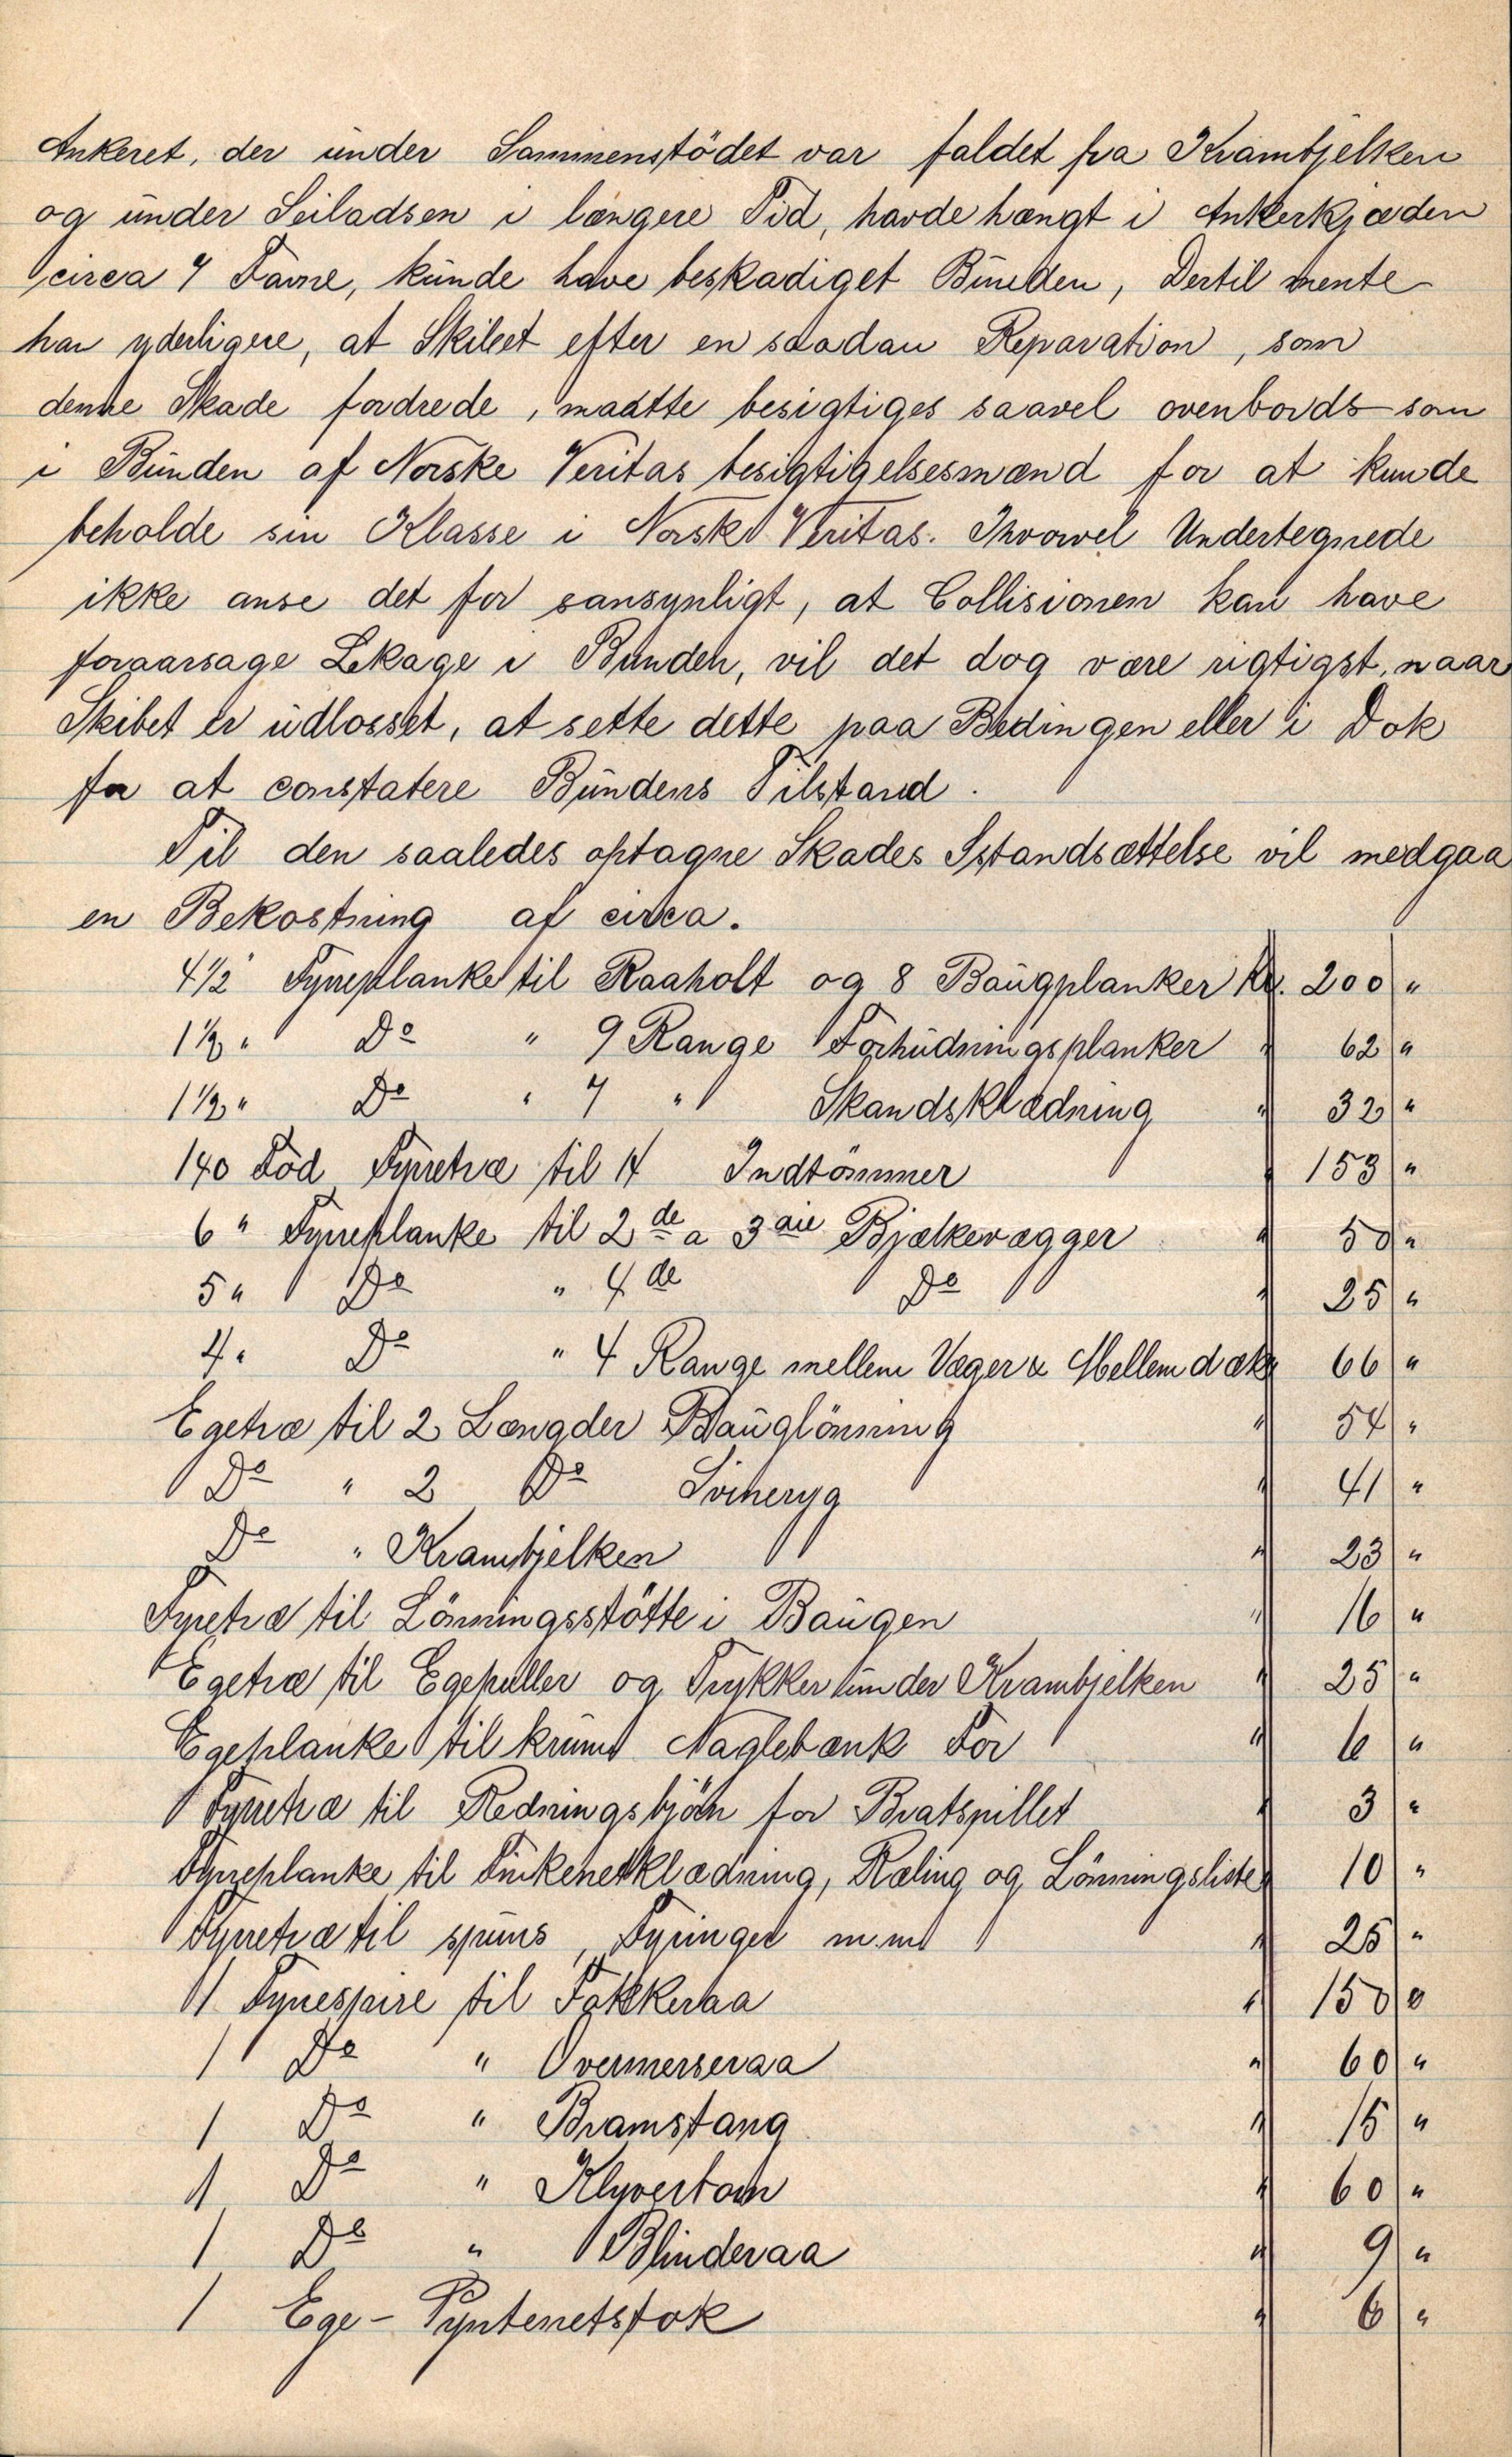 Ankeret, der under Sammenstödet var faldet fra Krambjelken
og under Seiladsen i længere Tid, havde hængt i Ankerkjæden
circa 7 Favne, kunde have beskadiget Bunden, Dertil mente
han yderligere, at Skibet efter en saadan Reparation, som
denne Skade fordrede, maatte besigtiges saavel ovenbords som
i Bunden af Norske Veritas besigtigelsesmænd for at kunde
beholde sin Klasse i Norske Veritas. Ihvorvel Undertegnede
ikke anse det for sansynligt, at Collisionen kan have
foraarsage Lekage i Bunden, vil det dog være rigtigst, naar
Skibet er udlosset, at sette dette paa Bedingen eller i Dok
for at constatere Bundens Tilstand.
Til den saaledes optagne Skades Istandsættelse vil medgaa
en Bekostning af circa.
4 1/2" Fyrreplanke til Raaholt og 8 Baugplanker Kr. 200 "
1 1/2 " Do " 9 Range Forhudningsplanker " 62 "
1 1/2 " Do " 7 " Skandsklædning " 32 "
140 Fod Fyrretræ til 14 Indtömmer " 153 "
6 " Fyrreplanke til 2de a 3die Bjælkevægger " 50 "
5 " Do " 4de Do " 25 "
4 " Do " 4 Range mellem Væger & Mellemdæk " 66 "
Egetræ til 2 Længder Bauglönning " 54 "
Do " 2 Do Svineryg " 41 "
Do " Krambjelken " 23 "
Fyretræ til Lönningsstötte i Baugen " 16 "
Egetræ til Egepuller og Trykker under Krambjelken " 25 "
Egeplanke til krum Naglebænk For " 6 "
Fyrretræ til Redningsbjön for Bratspillet " 3 "
Fyrreplanke til Finkenetklædning, Ræling og Lönningslister 10 "
Fyrretræ til spuns, Fyringer m.m " 25 "
1 Fyrrespire til Fokkeraa " 150 "
1 Do " Overmerseraa " 60 "
1 Do " Bramstang " 15 "
1 Do " Klyverbom " 60 "
1 Do " Blinderaa " 9 "
1 Ege - Pyntenetstok " 6 "